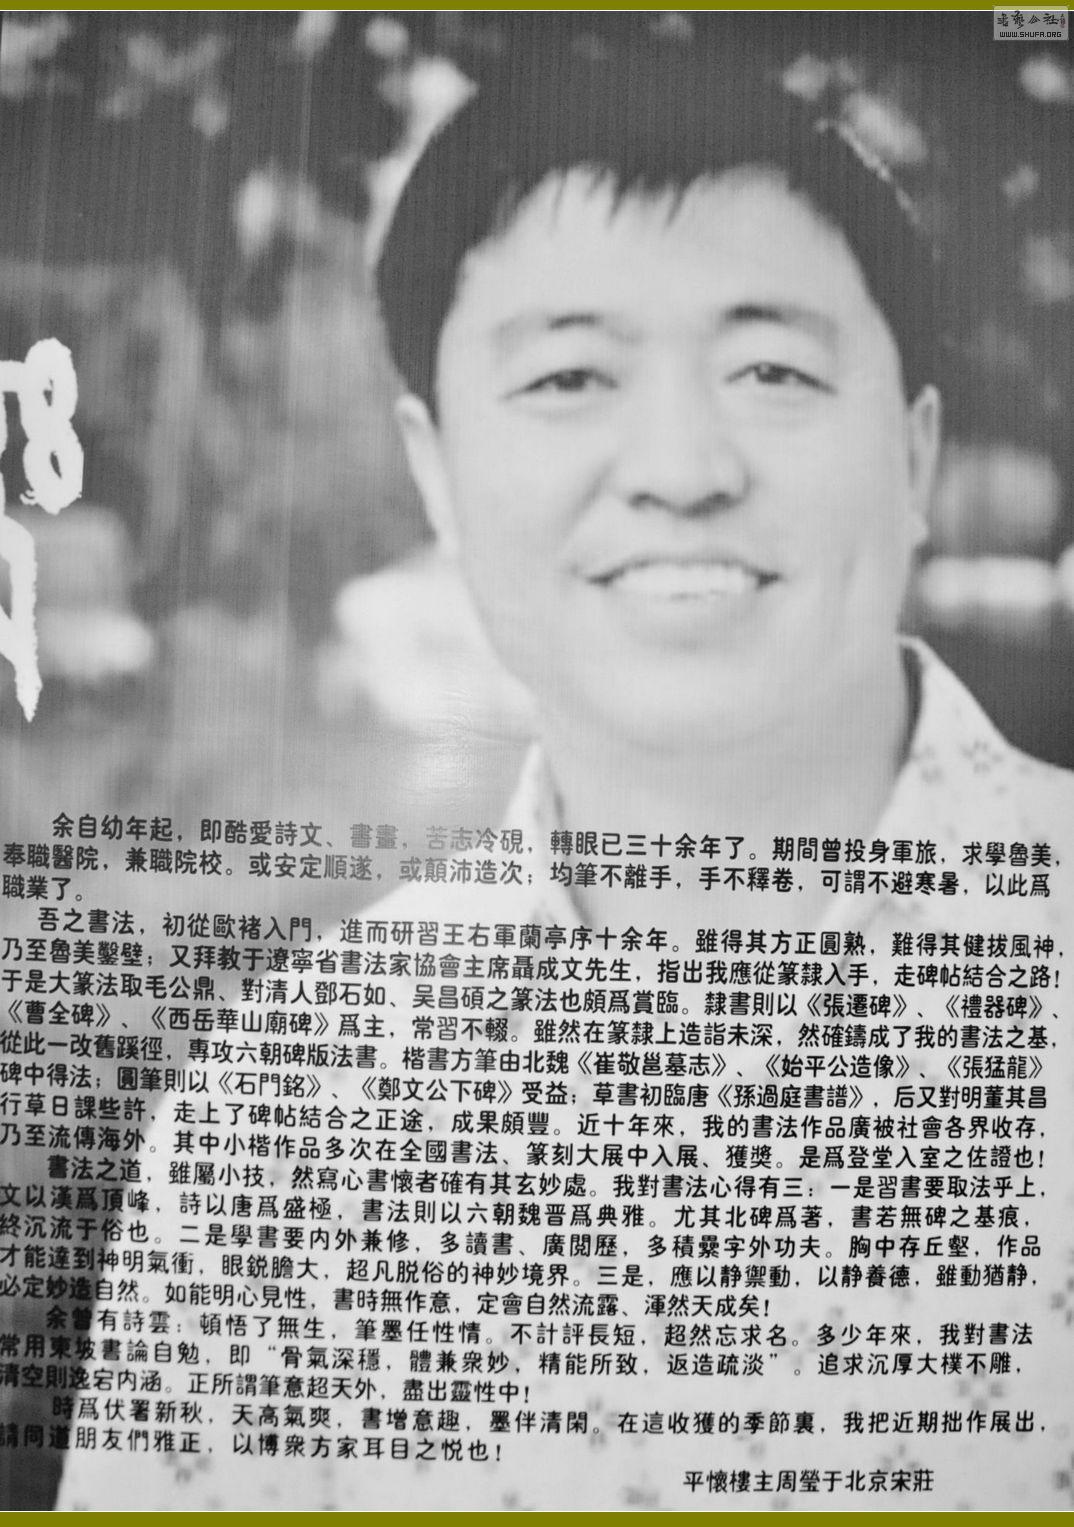 書藝公社
WWW.SHUFA.ORG
余自幼年起，即酷愛詩文、書畫，苦志冷硯，轉眼已三十余年了。期間曾投身軍旅，求學魯美，
奉職醫院，兼職院校。或安定順遂，或顛沛造次；均筆不離手，手不釋卷，可謂不避寒暑，以此爲
職業了。
吾之書法，初從歐褚入門，進而研習王右軍蘭亭序十余年。雖得其方正圓熟，難得其健拔風神，
乃至魯美鑿壁；又拜教于遼寧省書法家協會主席聶成文先生，指出我應從篆隸入手，走碑帖結合之路！
于是大篆法取毛公鼎、對清人鄧石如、吴昌碩之篆法也頗爲賞臨。隸書則以《張遷碑》、《禮器碑》、
《曹全碑》、《西岳華山廟碑》爲主，常習不輟。雖然在篆隸上造詣未深，然確鑄成了我的書法之基，
從此一改舊蹊徑，專攻六朝碑版法書。楷書方筆由北魏《崔敬邕墓志》、《始平公造像》、《張猛龍》
碑中得法；圓筆則以《石門銘》、《鄭文公下碑》受益；草書初臨唐《孫過庭書譜》，后又對明董其昌
行草日課些許，走上了碑帖結合之正途，成果頗豐。近十年來，我的書法作品廣被社會各界收存，
乃至流傳海外。其中小楷作品多次在全國書法、篆刻大展中入展、獲獎。是爲登堂入室之佐證也！
書法之道，雖屬小技，然寫心書懷者確有其玄妙處。我對書法心得有三：一是習書要取法乎上，
文以漢爲頂峰，詩以唐爲盛極，書法則以六朝魏晋爲典雅。尤其北碑爲著，書若無碑之基痕，
終沉流于俗也。二是學書要内外兼修，多讀書、廣閲歷，多積纍字外功夫。胸中存丘壑，作品
才能達到神明氣衝，眼鋭膽大，超凡脱俗的神妙境界。三是，應以静禦動，以静養德，雖動猶静，
必定妙造自然。如能明心見性，書時無作意，定會自然流露、渾然天成矣！
余曾有詩雲：頓悟了無生，筆墨任性情。不計評長短，超然忘求名。多少年來，我對書法
常用東坡書論自勉，即“骨氣深穩，體兼衆妙，精能所致，返造疏淡”。追求沉厚大樸不雕，
清空則逸宕内涵。正所謂筆意超天外，盡出靈性中！
時爲伏署新秋，天高氣爽，書增意趣，墨伴清閑。在這收獲的季節裏，我把近期拙作展出，
請同道朋友們雅正，以博衆方家耳目之悦也！
平懷樓主周瑩于北京宋莊